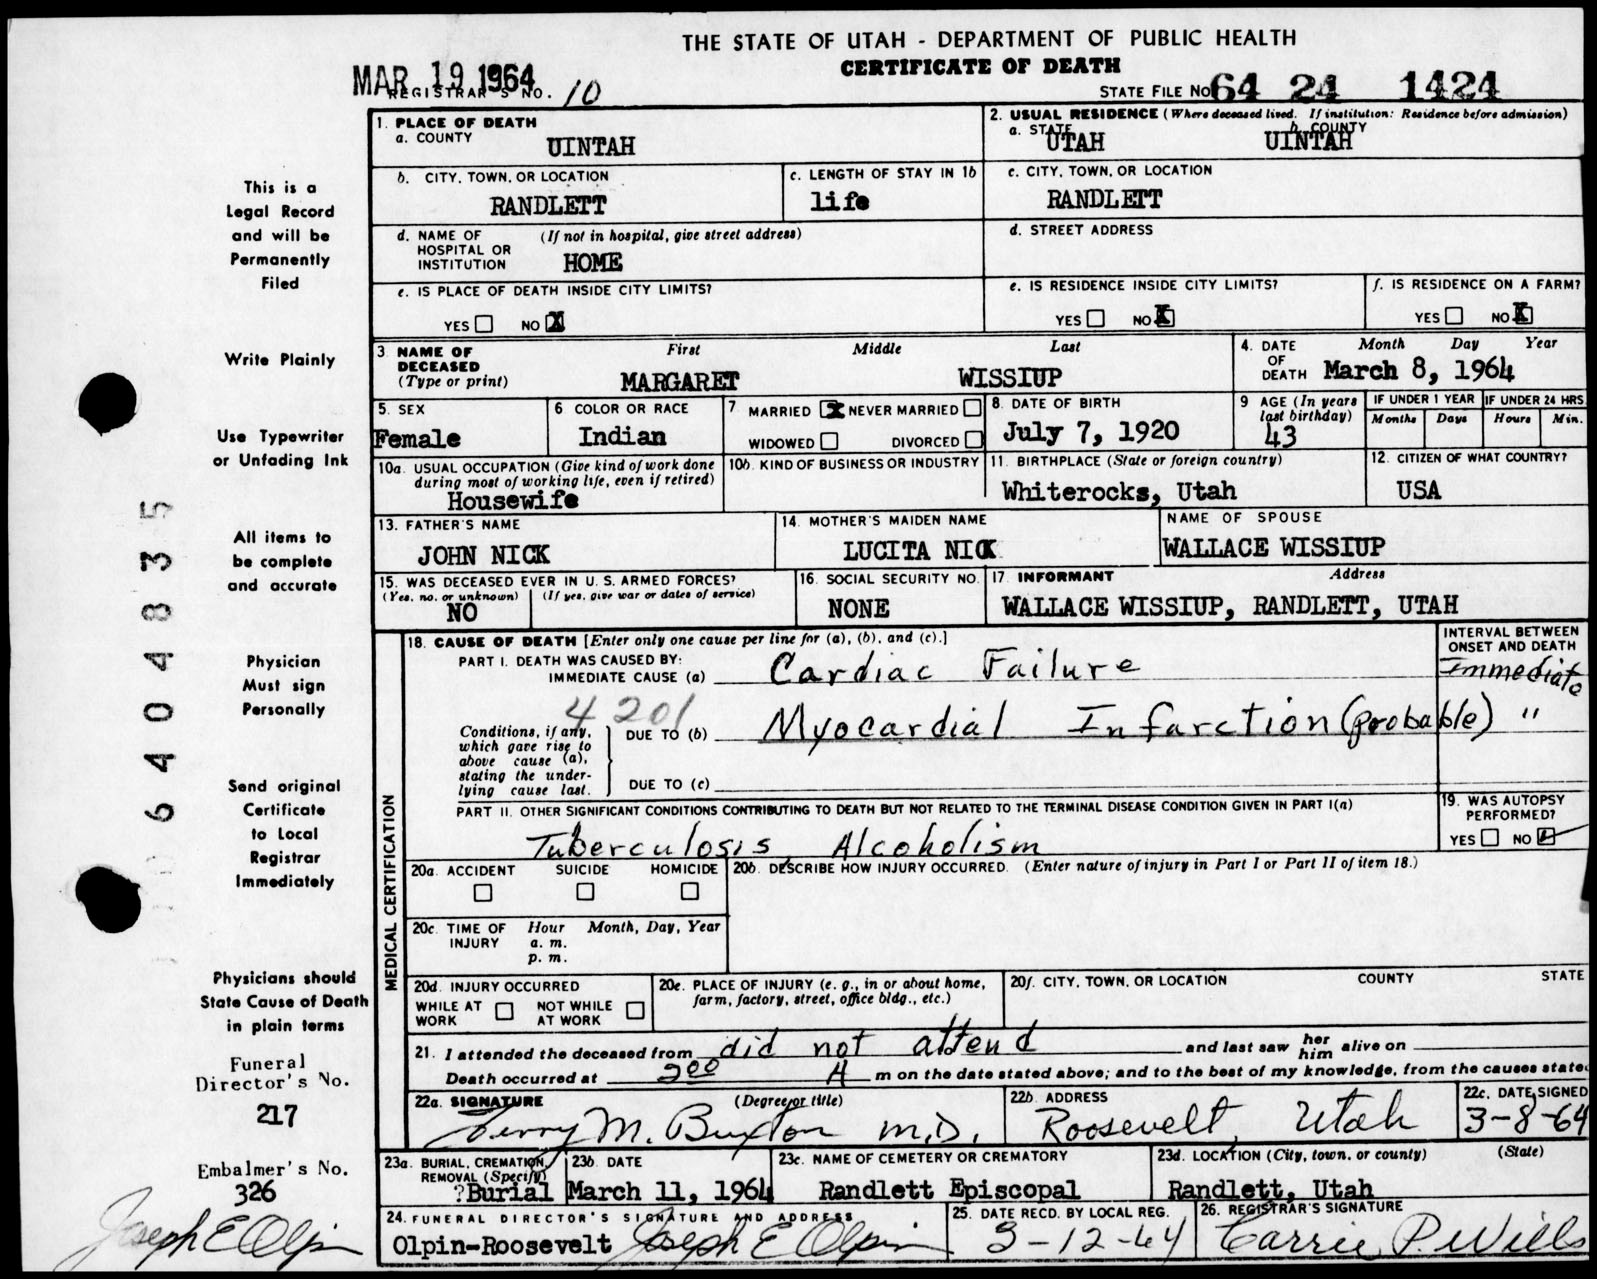 THE STATE OF UTAH - DEPARTMENT OF PUBLIC HEALTH
CERTIFICATE OF DEATH
MAR 19 1964
REGISTRAR'S NO. 10
STATE FILE NO. 64 24 1424
1. PLACE OF DEATH
a. COUNTY
UINTAH
2. USUAL RESIDENCE (Where deceased lived. If institution: Residence before admission)
a. STATE
UTAH
b. COUNTY
UINTAH
b. CITY, TOWN, OR LOCATION
RANDLETT
c. LENGTH OF STAY IN 1b
life
c. CITY, TOWN, OR LOCATION
RANDLETT
d. NAME OF HOSPITAL OR INSTITUTION
(If not in hospital, give street address)
HOME
d. STREET ADDRESS
e. IS PLACE OF DEATH INSIDE CITY LIMITS?
YES NO X
e. IS RESIDENCE INSIDE CITY LIMITS?
YES NO X
f. IS RESIDENCE ON A FARM?
YES NO X
3. NAME OF DECEASED (Type or print)
First Middle Last
MARGARET WISSIUP
4. DATE OF DEATH
Month Day Year
March 8, 1964
5. SEX
Female
6 COLOR OR RACE
Indian
7 MARRIED X NEVER MARRIED
WIDOWED DIVORCED
8. DATE OF BIRTH
July 7, 1920
9 AGE (In years last birthday)
43
IF UNDER 1 YEAR
Months Days
IF UNDER 24 HRS.
Hours Min.
10a. USUAL OCCUPATION (Give kind of work done during most of working life, even if retired)
Housewife
10b. KIND OF BUSINESS OR INDUSTRY
11. BIRTHPLACE (State or foreign country)
Whiterocks, Utah
12. CITIZEN OF WHAT COUNTRY?
USA
13. FATHER'S NAME
JOHN NICK
14. MOTHER'S MAIDEN NAME
LUCITA NICK
NAME OF SPOUSE
WALLACE WISSIUP
15. WAS DECEASED EVER IN U. S. ARMED FORCES?
(Yes, no, or unknown) (If yes, give war or dates of service)
NO
16. SOCIAL SECURITY NO.
NONE
17. INFORMANT Address
WALLACE WISSIUP, RANDLETT, UTAH
MEDICAL CERTIFICATION
18. CAUSE OF DEATH [Enter only one cause per line for (a), (b), and (c).]
INTERVAL BETWEEN ONSET AND DEATH
PART I. DEATH WAS CAUSED BY:
IMMEDIATE CAUSE (a) Cardiac Failure Immediate
4201
Conditions, if any, which gave rise to above cause (a), stating the underlying cause last.
DUE TO (b) Myocardial Infarction (probable) "
DUE TO (c)
PART II. OTHER SIGNIFICANT CONDITIONS CONTRIBUTING TO DEATH BUT NOT RELATED TO THE TERMINAL DISEASE CONDITION GIVEN IN PART I(a)
Tuberculosis, Alcoholism
19. WAS AUTOPSY PERFORMED?
YES NO
20a. ACCIDENT SUICIDE HOMICIDE
20b. DESCRIBE HOW INJURY OCCURRED. (Enter nature of injury in Part I or Part II of item 18.)
20c. TIME OF INJURY
Hour Month, Day, Year
a. m.
p. m.
20d. INJURY OCCURRED
WHILE AT WORK NOT WHILE AT WORK
20e. PLACE OF INJURY (e. g., in or about home, farm, factory, street, office bldg., etc.)
20f. CITY, TOWN, OR LOCATION COUNTY STATE
21. I attended the deceased from did not attend and last saw her him alive on
Death occurred at 2 00 A m on the date stated above; and to the best of my knowledge, from the causes stated
22a. SIGNATURE (Degree or title)
Terry M. Buxton M.D.
22b. ADDRESS
Roosevelt, Utah
22c. DATE SIGNED
3-8-64
23a. BURIAL, CREMATION, REMOVAL (Specify)
?Burial
23b. DATE
March 11, 1964
23c. NAME OF CEMETERY OR CREMATORY
Randlett Episcopal
23d. LOCATION (City, town, or county) (State)
Randlett, Utah
24. FUNERAL DIRECTOR'S SIGNATURE AND ADDRESS
Olpin-Roosevelt Joseph E Olpin
25. DATE RECD. BY LOCAL REG.
3-12-64
26. REGISTRAR'S SIGNATURE
Carrie P. Wills
This is a
Legal Record
and will be
Permanently
Filed
Write Plainly
Use Typewriter
or Unfading Ink
All items to
be complete
and accurate
Physician
Must sign
Personally
Send original
Certificate
to Local
Registrar
Immediately
Physicians should
State Cause of Death
in plain terms
Funeral
Director's No.
217
Embalmer's No.
326
Joseph E Olpin
6404835